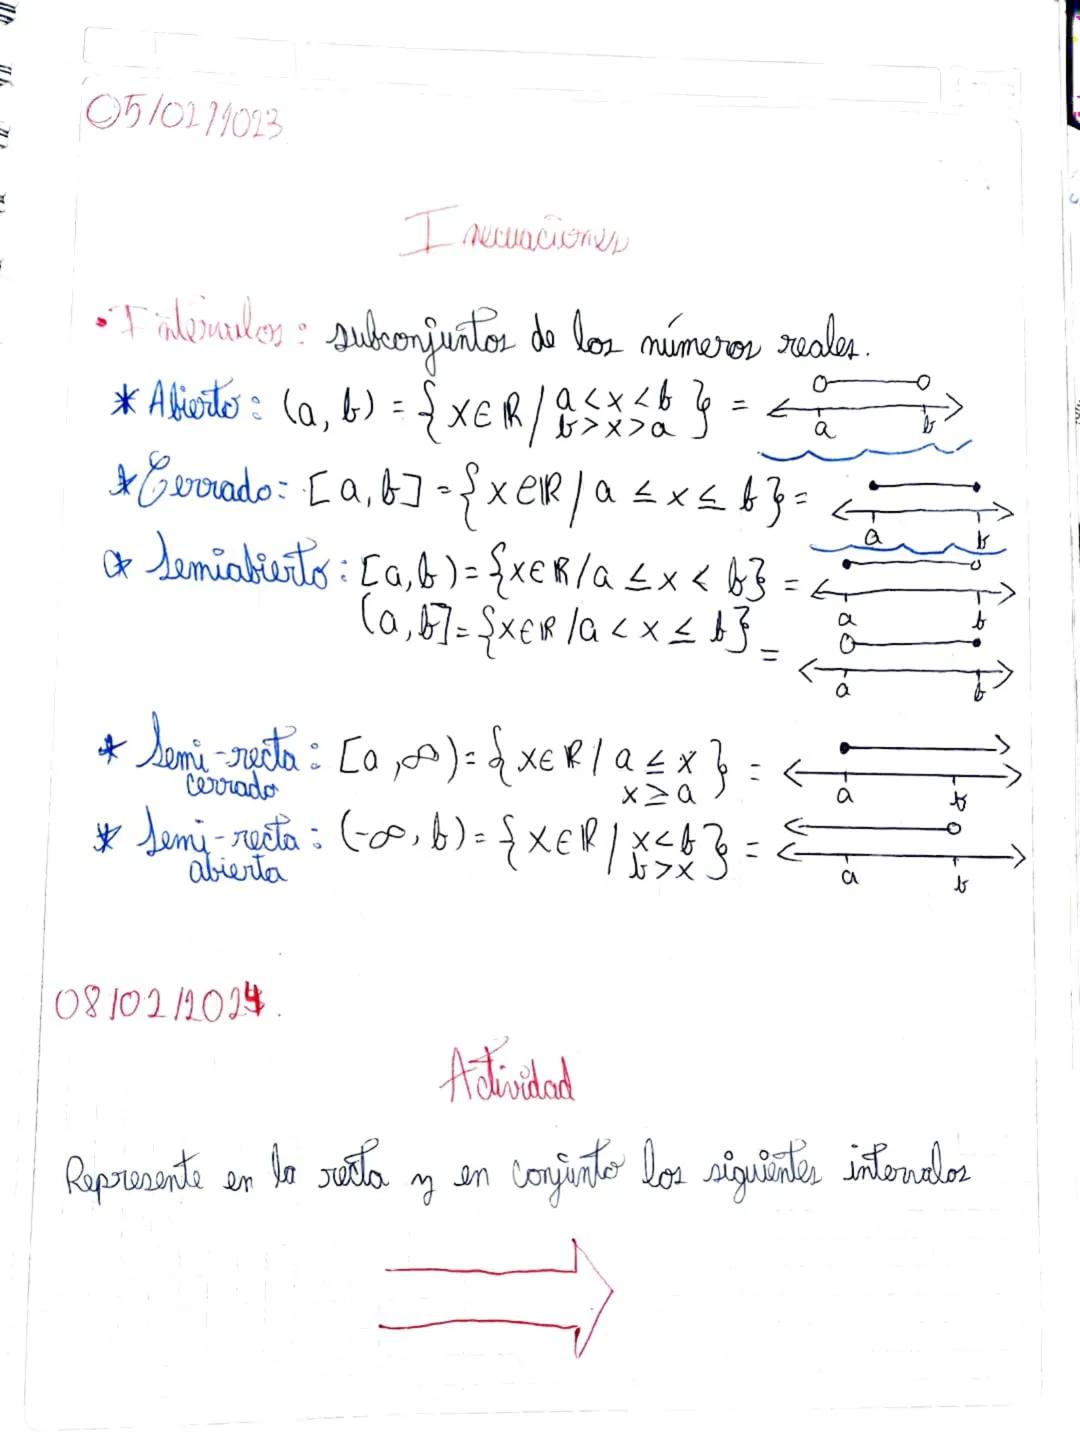 05/02/2023
Inecuaciones
• Intervalos: subconjuntos de los números reales.
* Abierto: (a, b) = { x∈ℝ / a<x<b } =
b>x>a
a b
* Cerrado: [a, b] = { x∈ℝ / a ≤ x ≤ b } =
a b
* Semiabierto: [a, b) = {x∈ℝ/a ≤ x < b} =
a b
(a, b] = {x∈ℝ /a < x ≤ b} =
a b
* Semi-recta: [a, ∞) = { x∈ℝ / a ≤ x } =
cerrado x ≥ a
a b
* Semi-recta: (-∞, b) = { x∈ℝ / x<b } =
abierta b>x
a b
08/02/2024.
Actividad
Represente en la recta y en conjunto los siguientes intervalos